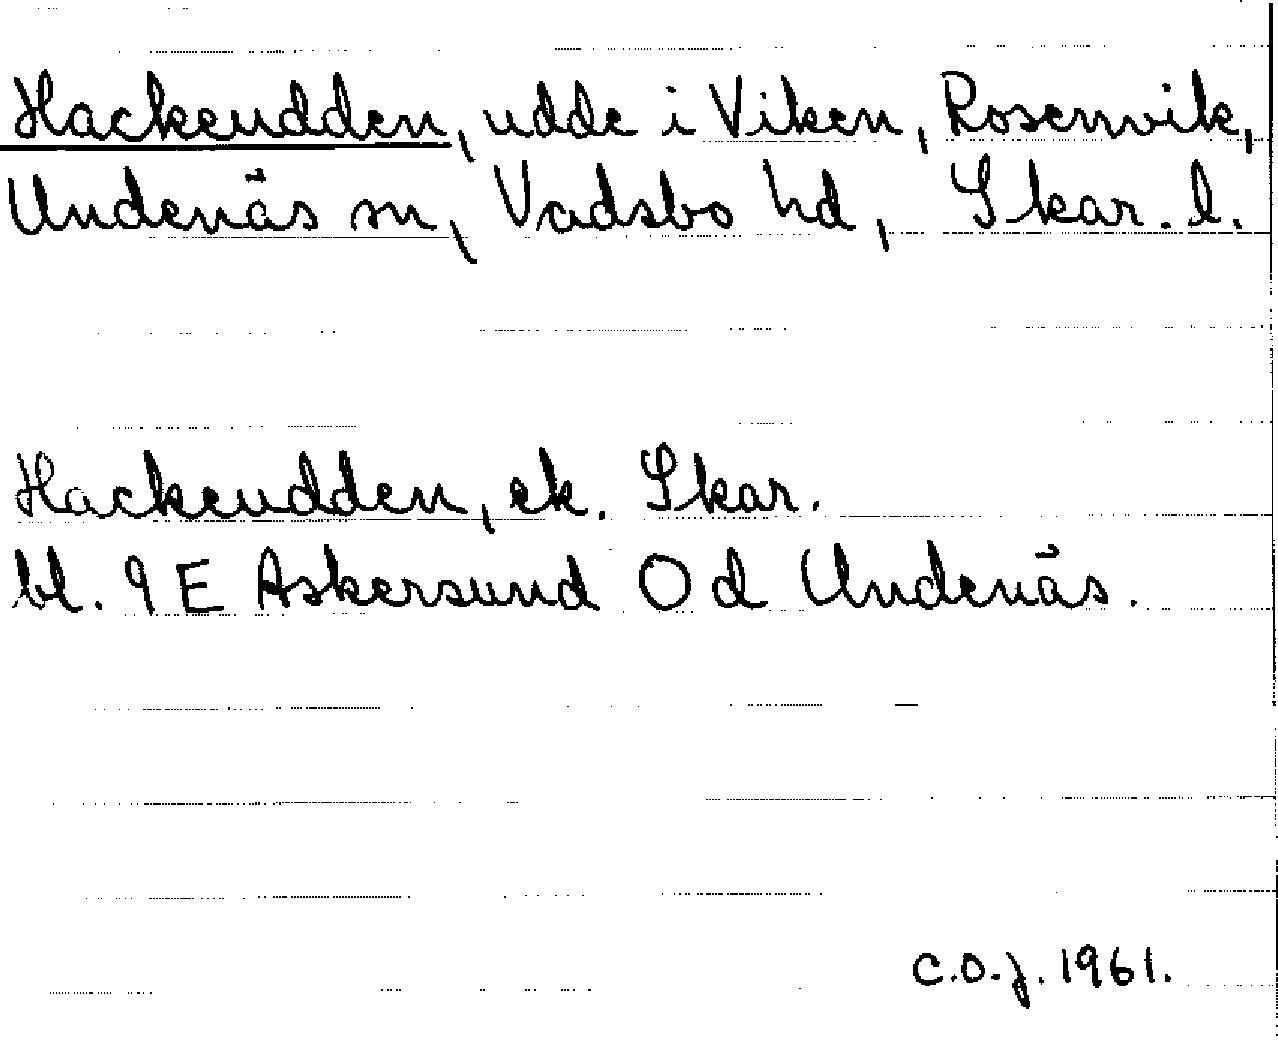 Hackeudden, udde i Viken, Rosenvik,
Undenäs sn, Vadsbo hd, Skar. l.
Hackeudden, ek. Skar.
bl. 9 E Askersund O d Undenäs.
C.O.J. 1961.